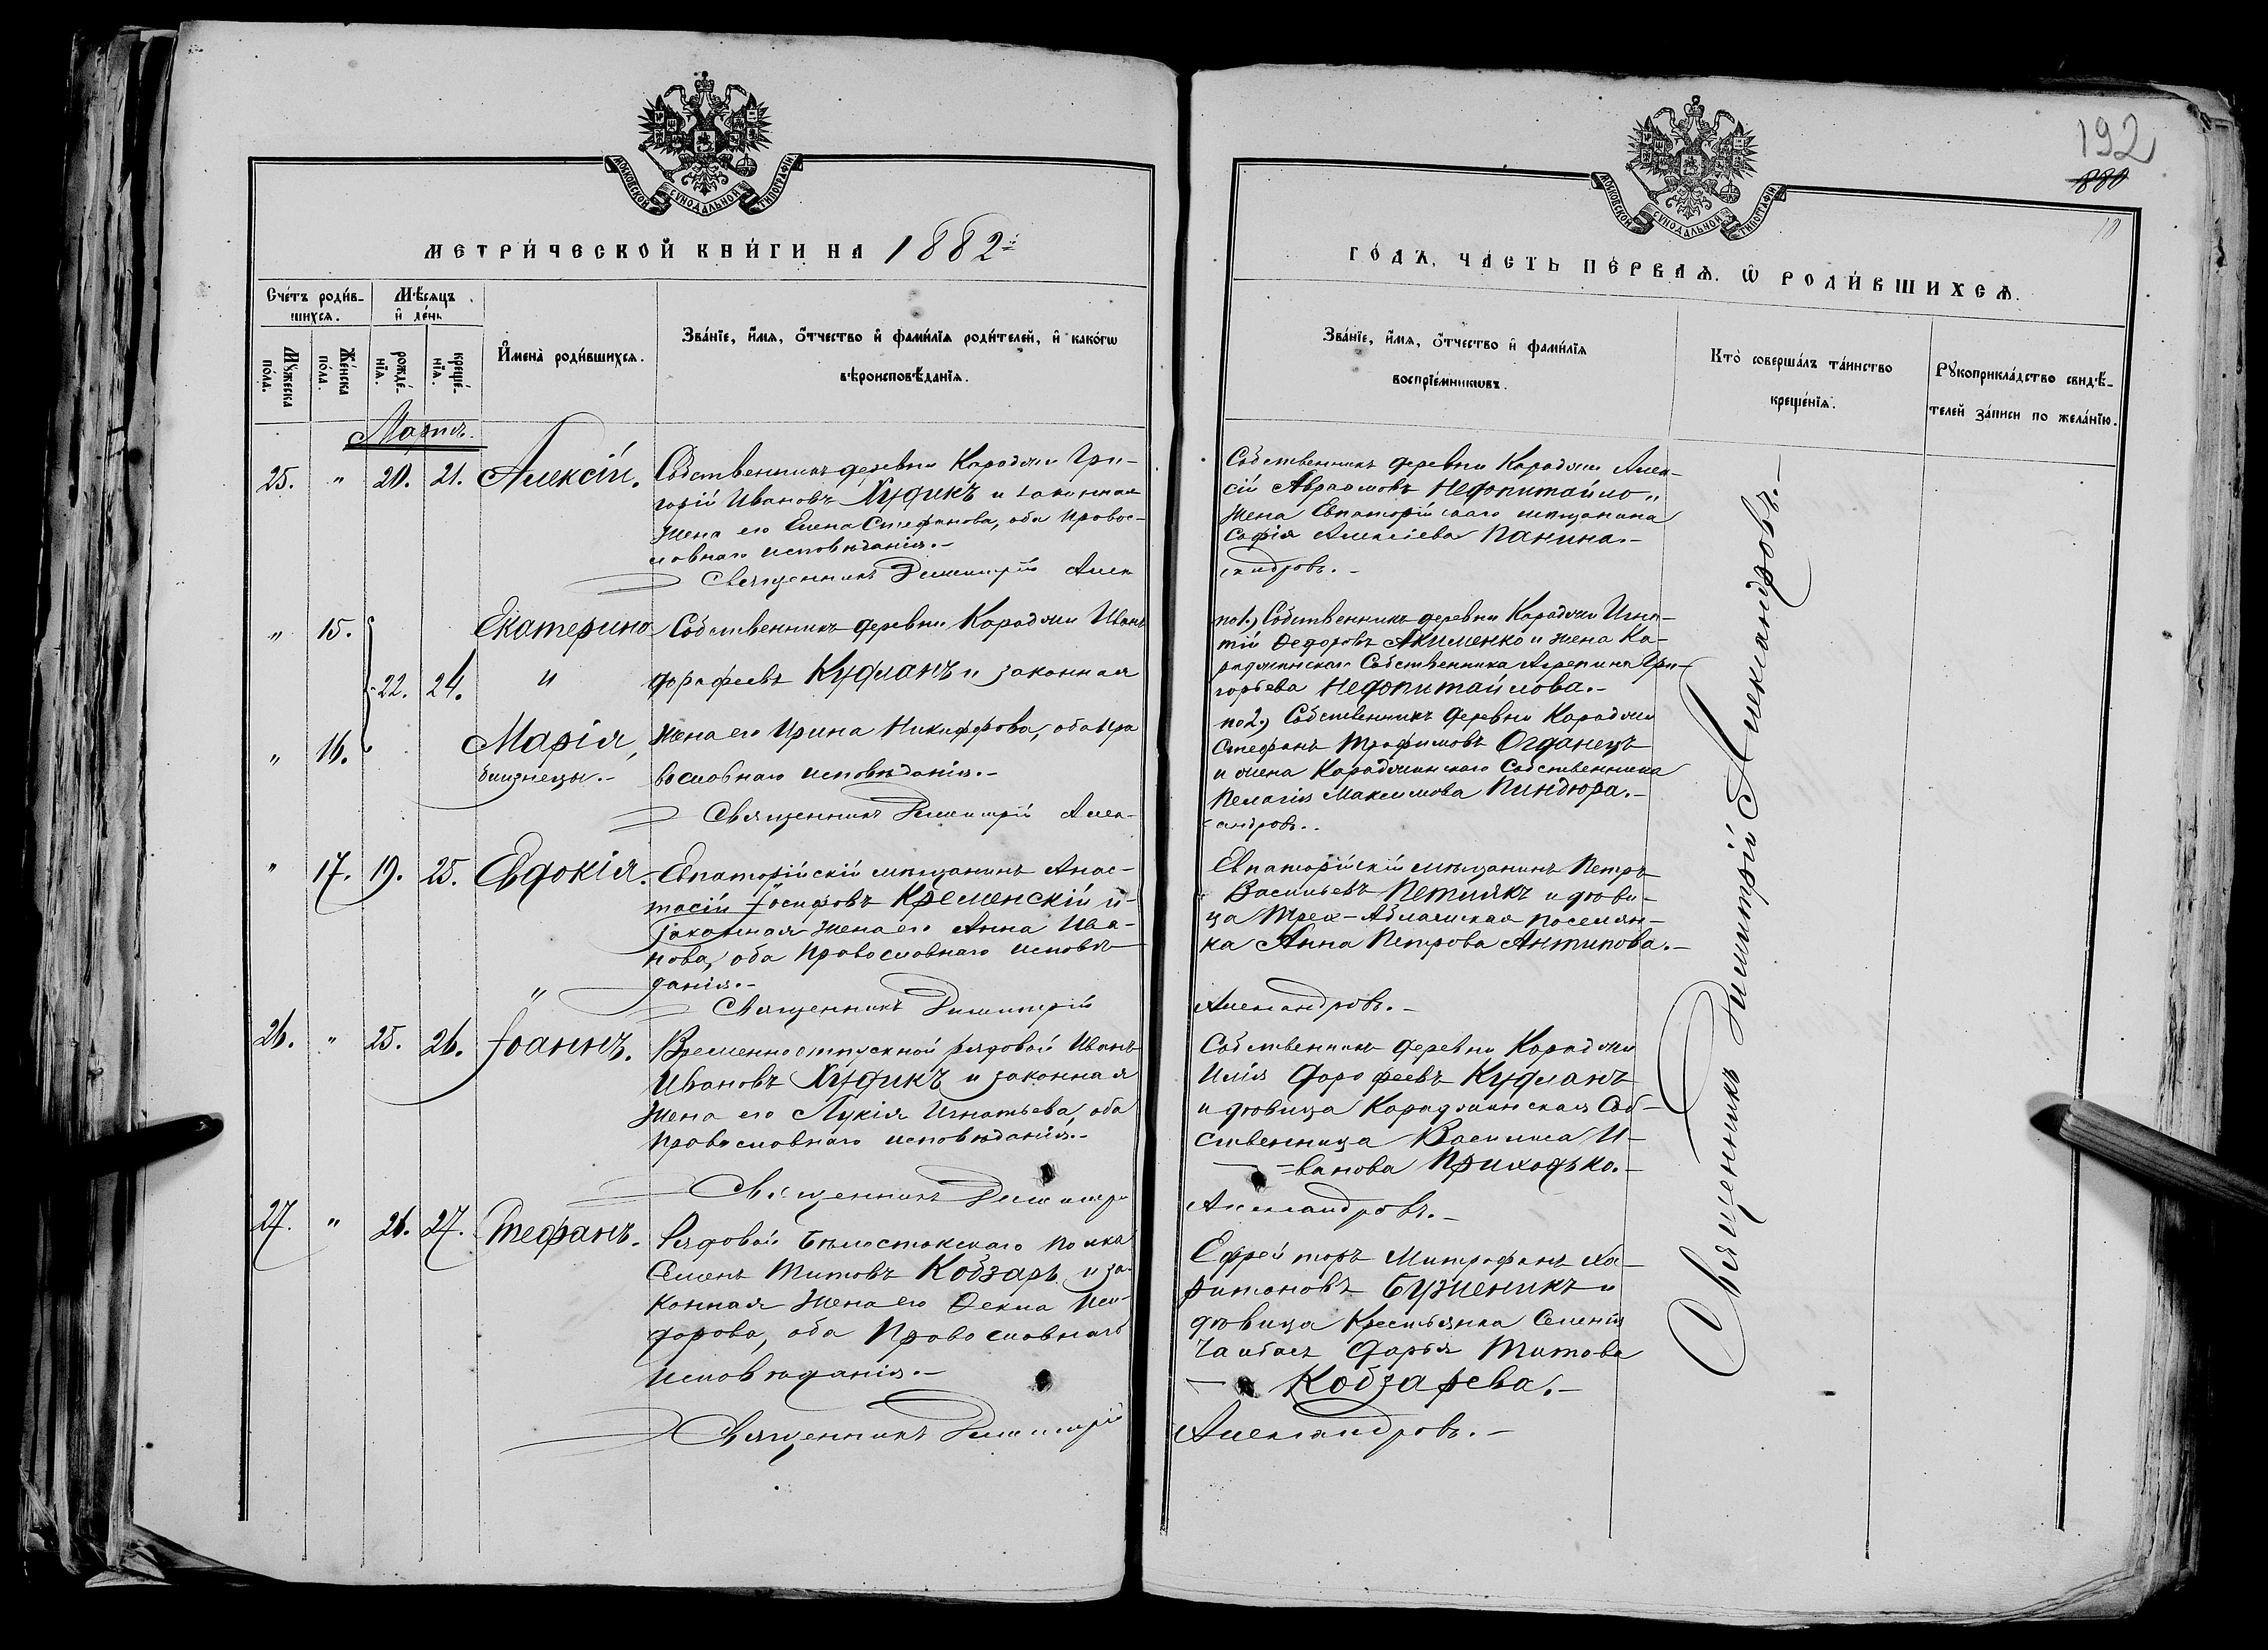 МОСКОВСКОЙ СѴНОДАЛЬНОЙ ТИПОГРАФІИ
МЕТРИ́ЧЕСКОЙ КНИ́ГИ НА 1882й
Сче́тъ роди́в-
шихся.
Мѣ́сяцъ
и҆ де́нь
Мꙋ́жеска
по́ла.
Же́нска
по́ла.
рожде́-
нїя.
креще́-
нїя.
И҆мена̀ роди́вшихся.
Зва́нїе, и҆́мя, ѻ҆́тчество и҆ фами́лїя роди́телей, и҆ како́гѡ
вѣроисповѣ́данїя.
Мартъ.
25. " 20. 21. Алексій.
Собственникъ деревни Караджи Гри-
горій Ивановъ Худикъ и законная
жена его Елена Стефанова, оба Правос-
лавнаго исповѣданія.-
Священникъ Димитрій Алек
" 15. Екатерина
Собственникъ деревни Караджи Иванъ
22. 24. и
Дорофеевъ Кудланъ и законная
" 16. Марія,
близнецы.-
жена его Ирина Никифорова, оба Пра
вославнаго исповѣданія.-
Священникъ Димитрій Алек-
" 17. 19. 25. Евдокія.
Евпаторійскій мѣщанинъ Анас-
тасій Іосифовъ Кременскій и
законная жена его Анна Ива-
нова, оба Православнаго исповѣ-
данія.-
Священникъ Димитрій
26. " 25. 26. Іоаннъ.
Временноотпускной рядовой Иванъ
Ивановъ Худикъ и законная
жена его Лукія Игнатьева, оба
Православнаго исповѣданія.-
Священникъ Димитрі
27. " 26. 27. Стефанъ.
Рядовой Бѣлостокскаго полка
Семенъ Титовъ Кобзарь и за-
конная жена его Ѳекла Иси-
дорова, оба Православнаго
исповѣданія.-
Священникъ Димитрій
192
880
10
МОСКОВСКОЙ СѴНОДАЛЬНОЙ ТИПОГРАФІИ
ГО́ДЪ, ЧА́СТЬ ПЕ́РВАЯ. Ѡ҆ РОДИ́ВШИХСЯ.
Зва́нїе, и҆́мя, ѻ҆́тчество и҆ фами́лїя
воспрїе́мникѡвъ.
Кто̀ соверша́лъ та́инство
креще́нїя.
Рꙋкоприкла́дство свидѣ́-
телей за́писи по жела́нїю.
Собственникъ деревни Караджи Алек-
сій Авраамовъ Недопитайло"
жена Евпаторійскаго мѣщанина
Софія Алексіева Панина.-
сандровъ.-
по 1.) Собственникъ деревни Караджи Игна-
тій Ѳедоровъ Акименко и жена Ка-
раджинскаго Собственника Агрепина Гри-
горьева Недопитайлова.-
по 2.) Собственникъ деревни Караджи
Стефанъ Трофимовъ Огданецъ
и жена Караджинскаго Собственника
Пелагія Максимова Пиндюра.-
сандровъ.
Евпаторійскій мѣщанинъ Петръ
Васильевъ Петлякъ и дѣви-
ца Трех-Абламская поселян-
ка Анна Петрова Антипова.-
Александровъ.-
Собственникъ деревни Караджи
Илія Дорофеевъ Кудланъ
и дѣвица Караджинская Соб-
ственница Василиса И-
ванова Приходько.-
Александровъ.-
Ефрейторъ Митрофанъ Ха-
ритоновъ Бузненикъ и
дѣвица Крестьянка
Дарья Титова
Кобзарева.-
Александровъ.-
Священникъ Димитрій Александровъ.-